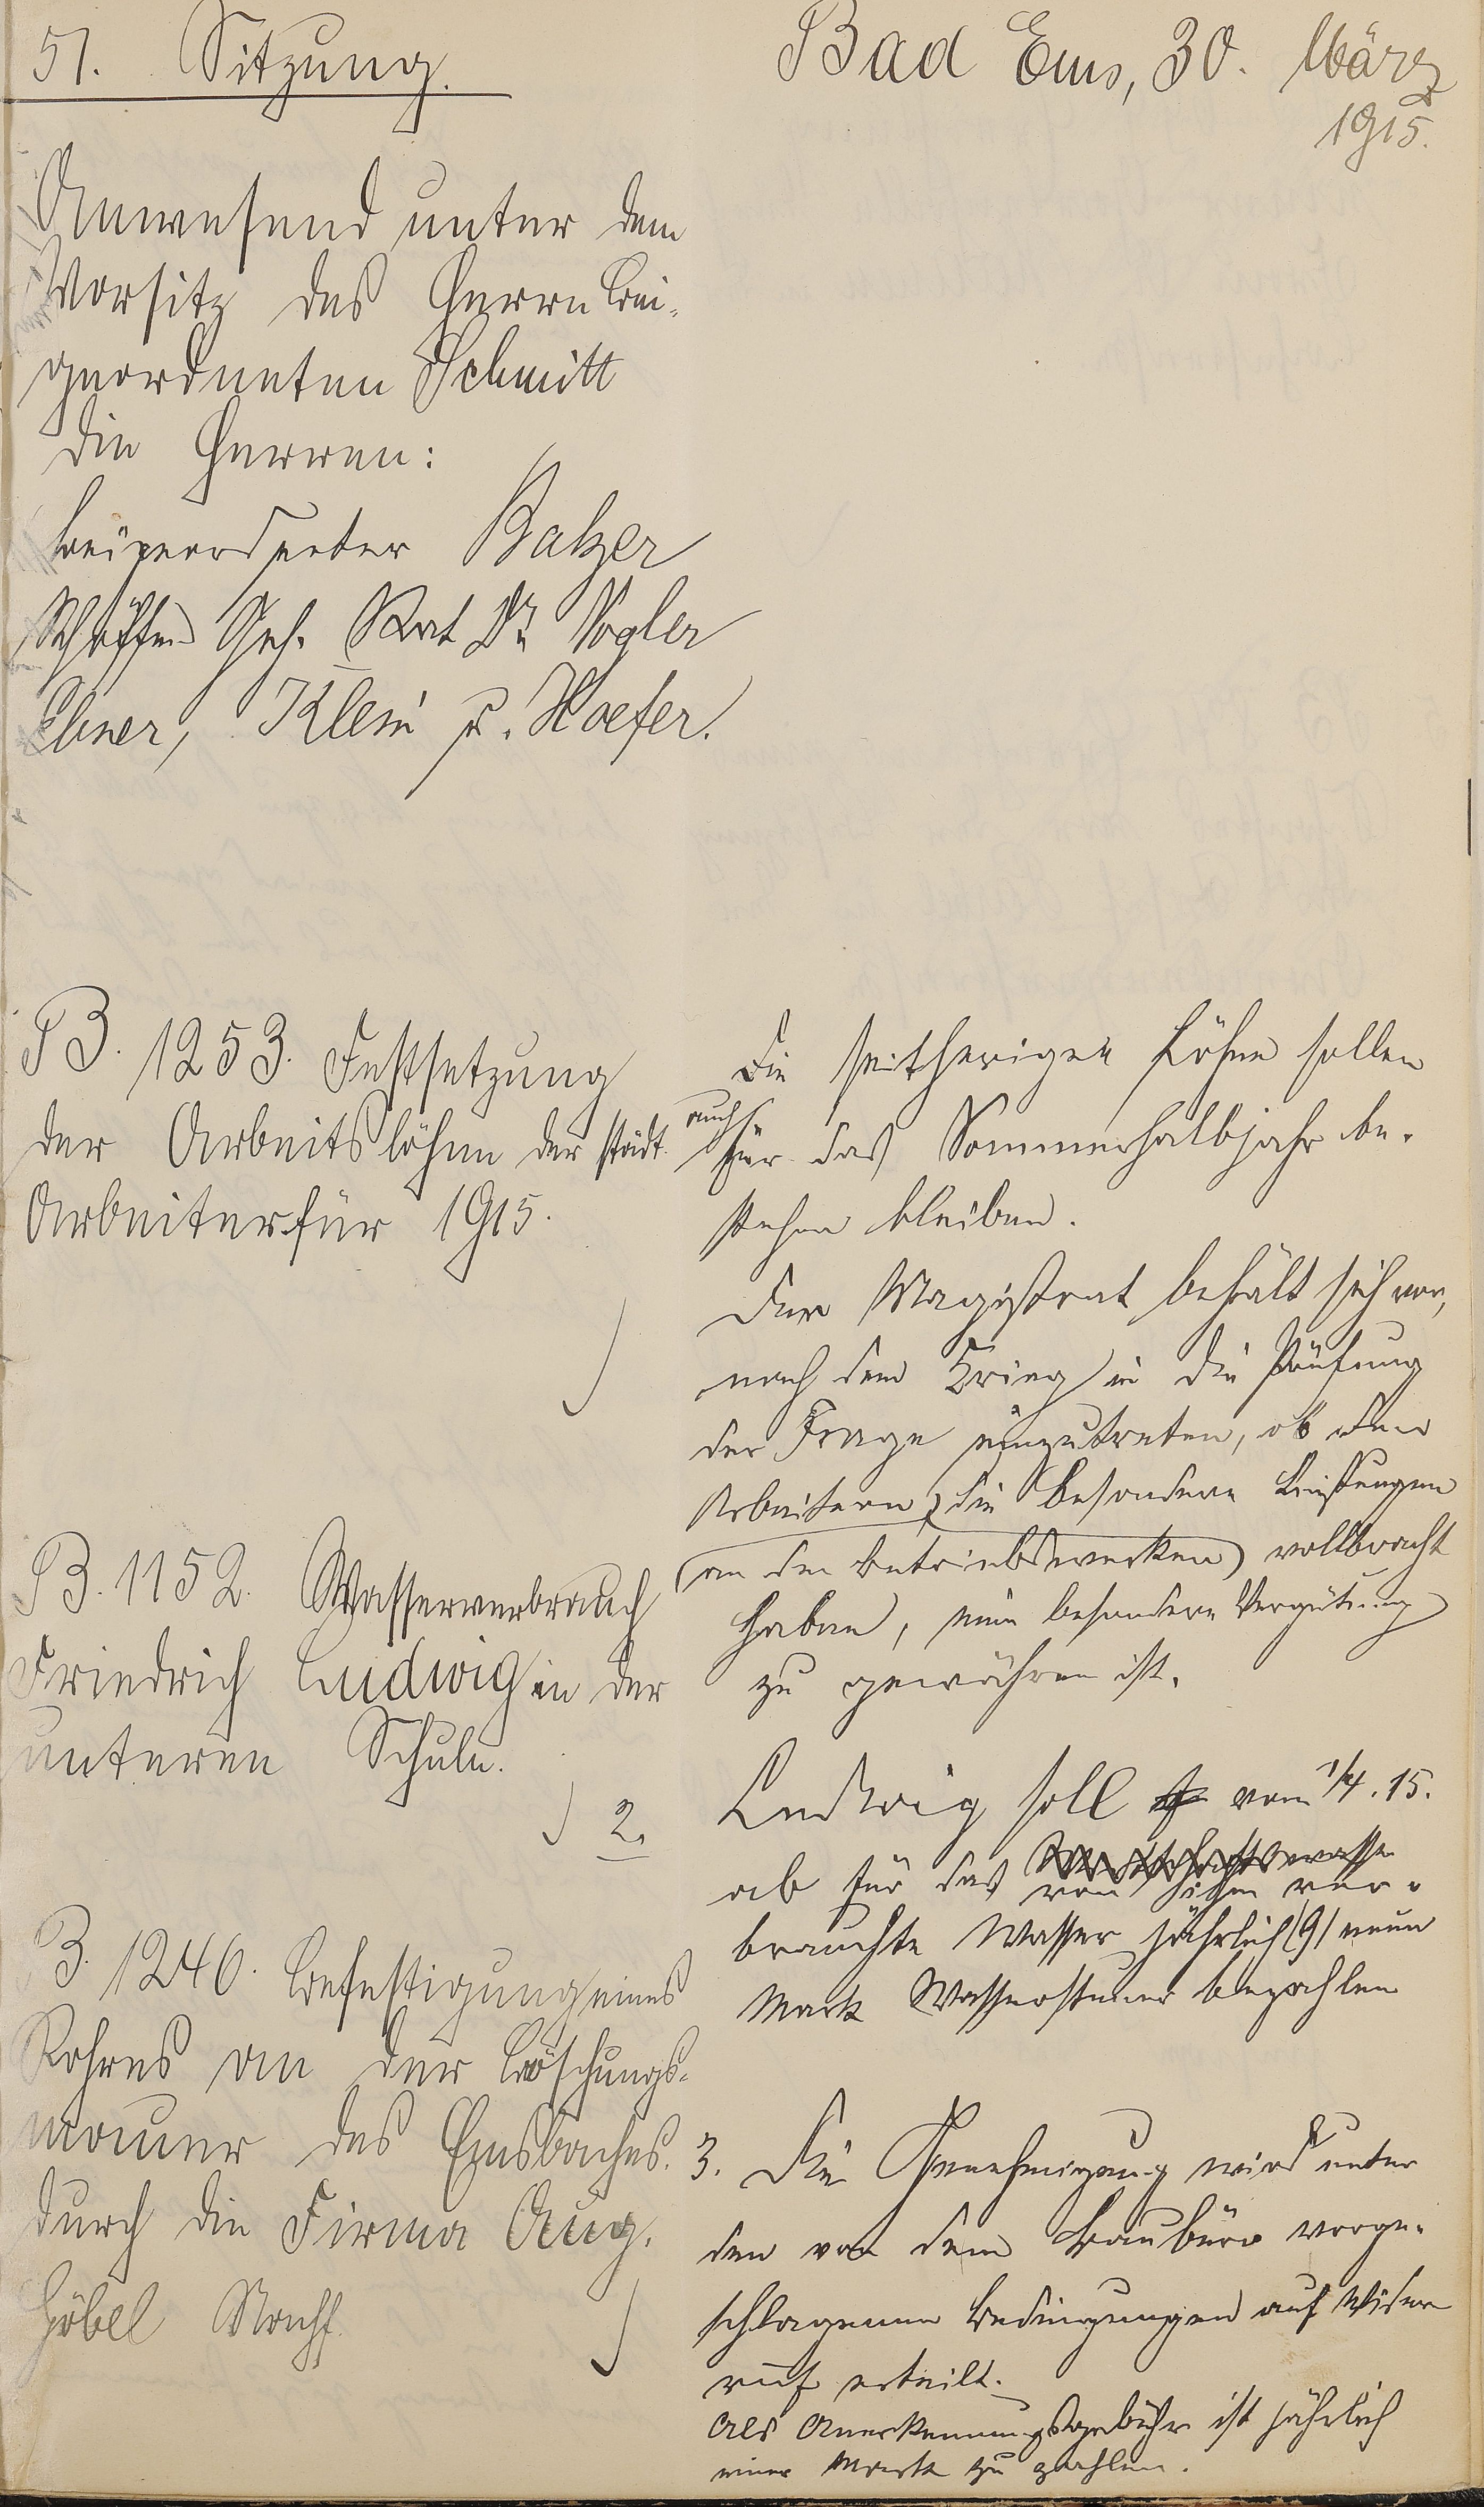 51. Sitzung.
Bad Ems, 30. März
1915.
Anwesend unter dem
Vorsitz des Herrn Bei-
geordneten Schmitt
die Herren:
Beigeordneter Balzer
Schöffen Geh. Rat Dr. Vogler
Ebner, Klein u. Hoefer.
B. 1253. Festsetzung
der Arbeitslöhne der städt.
Arbeiter für 1915.
Die seitherigen Löhne sollen
auch
für das Sommerhalbjahr be-
stehen bleiben.
Der Magistrat behält sich vor,
nach dem Krieg in die Prüfung
der Frage einzutreten, ob den
Arbeitern, die besondere Leistungen
(an den Betriebswerken) vollbracht
haben, eine besondere Vergütung
zu gewähren ist.
B. 1152. Wasserverbrauch
Friedrich Ludwig in der
unteren Schule.
2.
Ludwig soll vom 1/4. 15.
ab für das Wirtschaftswasser
von ihm ver-
brauchte Wasser jährlich (9) neun
Mark Wassersteuer bezahlen
B. 1246. Befestigung eines
Rohres an der Böschungs-
mauer des Emsbaches.
durch die Firma Aug.
Göbel Nachf.
3. Die Genehmigung wird unter
den von dem Baubüro vorge-
schlagenen Bedingungen auf Wider-
ruf erteilt.
Als Anerkennungsgebühr ist jährlich
eine Mark zu zahlen.